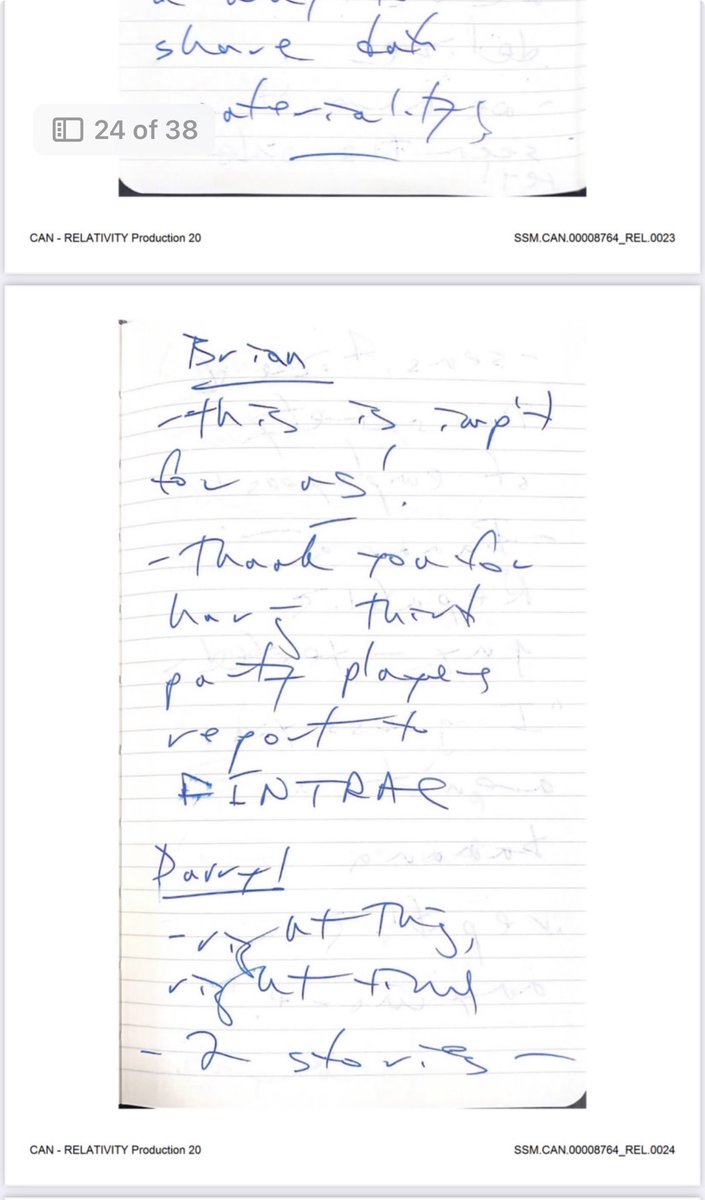 share data
materiality
24 of 38
CAN - RELATIVITY Production 20
SSM.CAN.00008764_REL.0023
Brian
- this is imp't
for us!
- Thank you for
having third
party players
report to
FINTRAC
Darryl
- right Thing,
right time
- 2 stories -
CAN - RELATIVITY Production 20
SSM.CAN.00008764_REL.0024